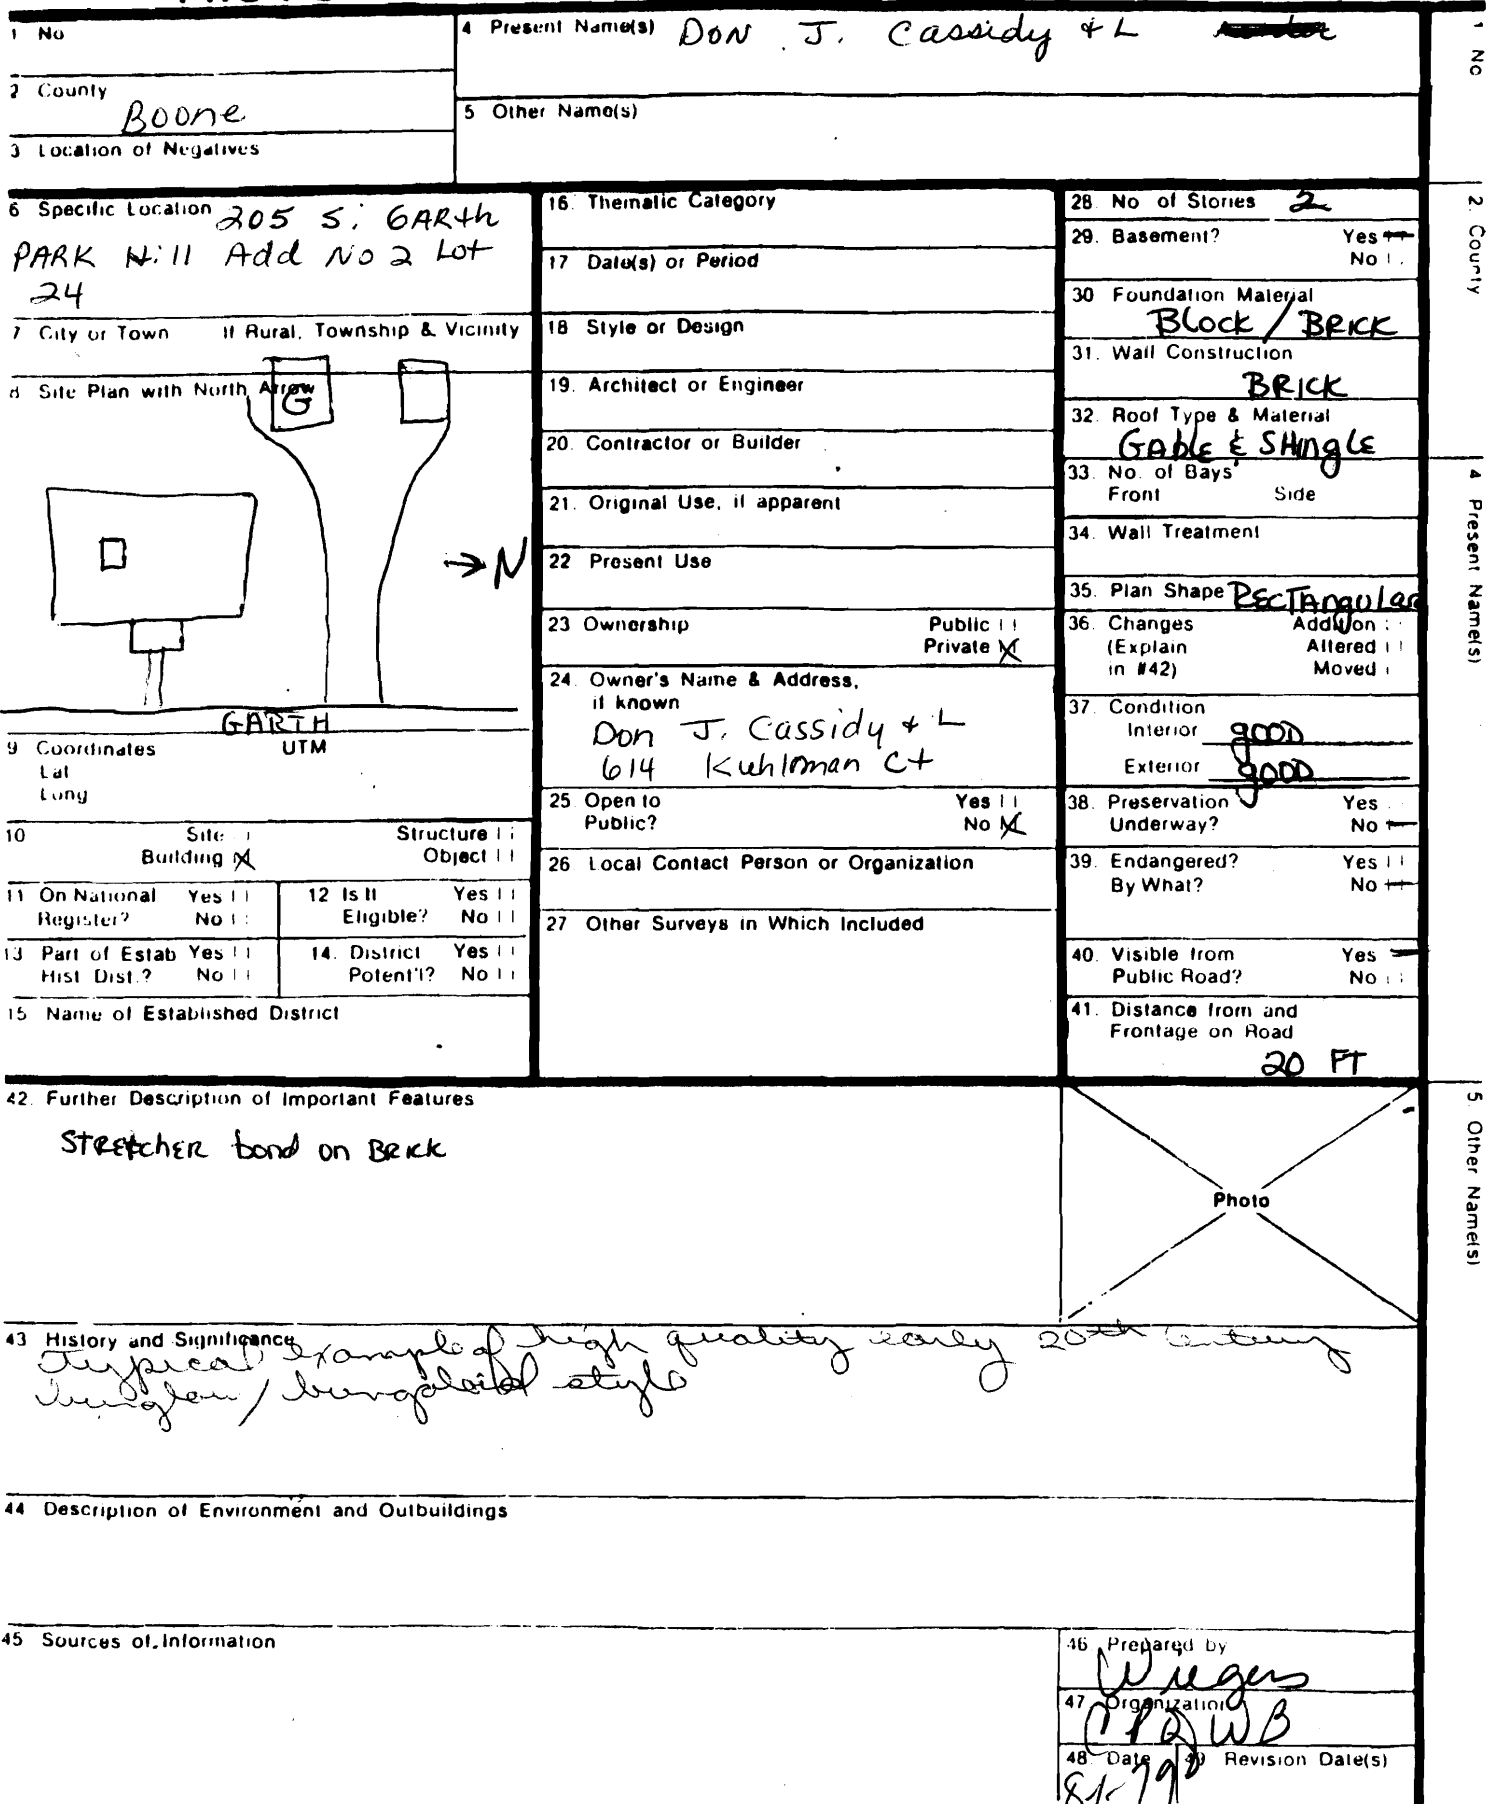 1 No
4 Present Name(s) Don J. Cassidy & L
2 County
Boone
5 Other Name(s)
3 Location of Negatives
6 Specific Location 205 S. GARth
PARK Hill Add No 2 Lot
24
7 City or Town If Rural, Township & Vicinity
8 Site Plan with North Arrow
G
→ N
GARTH
9 Coordinates UTM
Lat
Long
10 Site Structure
Building X Object
11 On National Register? Yes No
12 Is It Eligible? Yes No
13 Part of Estab Hist Dist.? Yes No
14. District Potent'l? Yes No
15 Name of Established District
16. Thematic Category
17 Date(s) or Period
18 Style or Design
19. Architect or Engineer
20. Contractor or Builder
21. Original Use, if apparent
22 Present Use
23 Ownership Public
Private X
24. Owner's Name & Address,
if known
Don J. Cassidy & L
614 Kuhlman Ct
25 Open to Yes
Public? No X
26 Local Contact Person or Organization
27 Other Surveys in Which Included
28. No of Stories 2
29. Basement? Yes
No
30 Foundation Material
Block / BRICK
31. Wall Construction
BRICK
32. Roof Type & Material
GAblE & SHinglE
33. No. of Bays
Front Side
34. Wall Treatment
35. Plan Shape RECTAngulAR
36. Changes Addition
(Explain Altered
in #42) Moved
37. Condition
Interior gOOD
Exterior gOOD
38. Preservation Yes
Underway? No
39. Endangered? Yes
By What? No
40. Visible from Yes
Public Road? No
41. Distance from and
Frontage on Road
20 FT
42. Further Description of Important Features
STRETcHER bond on BRICK
Photo
43 History and Significance
typical example of high quality early 20th Century
bunglow / bungaloid style
44 Description of Environment and Outbuildings
45 Sources of Information
46 Prepared by
Wiegers
47 Organization
48. Date 49 Revision Date(s)
1 No
2. County
4 Present Name(s)
5 Other Name(s)